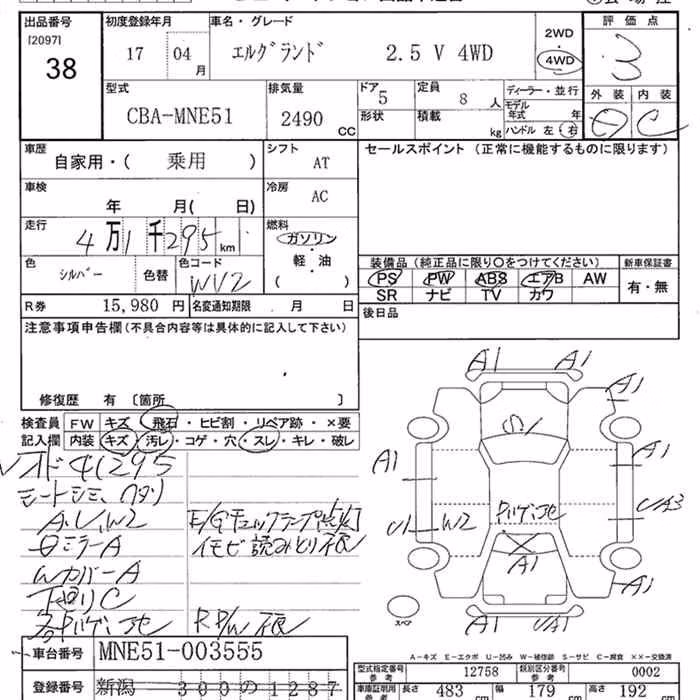 出品番号
[2097]
38
初度登録年月
17 04 月
車名・グレード
エルグランド 2.5 V 4WD
2WD
4WD
評価点
3
外装 内装
C
型式
CBA-MNE51
排気量
2490 CC
ドア
5
形状
定員
8 人
積載
kg
ディーラー・並行
モデル年式 年
ハンドル 左 右
車歴
自家用・( 乗用 )
シフト
AT
セールスポイント (正常に機能するものに限ります)
車検
年 月( 日)
冷房
AC
走行
4万1千295 km
燃料
ガソリン
軽・油
( )
色
シルバー
色替
色コード
WV2
装備品 (純正品に限り○をつけてください)
新車保証書
PS PW ABS エアB AW
SR ナビ TV カワ
有・無
R券 15,980 円
名変通知期限 月 日
後日品
注意事項申告欄 (不具合内容等は具体的に記入して下さい)
修復歴 有 [箇所 ]
検査員
記入欄
FW キズ・飛石・ヒビ割・リペア跡・×要
内装 キズ・汚レ・コゲ・穴・スレ・キレ・破レ
41295
A・U、W2
E/Gチェックランプ点灯
ミラーA
イモビ読みとり不良
WカバーA
下廻りC
R P/W 不良
A1 A1
A1
A1 A1
U1 W2
UA3
A1
A1
A1 UA1
スペア
A-キズ E-エクボ U-凹み W-補修跡 S-サビ C-腐食 ××-交換済
車台番号 MNE51-003555
登録番号 新潟 300の1287
型式指定番号 参考 12758
類別区分番号 参考 0002
車庫証明用 参考
長さ 483 cm
幅 179 cm
高さ 192 cm